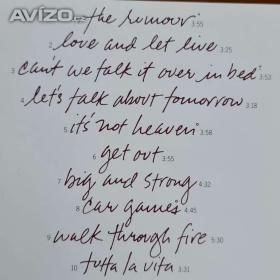 AVÍZO
the rumour 3:55
2 love and let live 3:25
3 can't we talk it over in bed 3:53
4 let's talk about tomorrow 3:18
5 it's not heaven 3:58
6 get out 3:55
7 big and strong 4:32
8 car games 4:45
9 walk through fire 5:30
10 tutta la vita 3:31